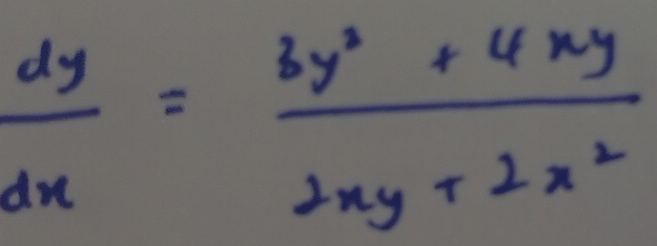 dy/dx = (3y² + 4xy)/(2xy + 2x²)